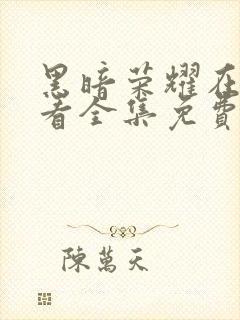 黑暗荣耀在
看全集免費
陳萬天